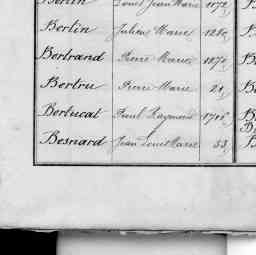 Bertin Louis Jean Marie 1172
Bertin Julien Marie 1280
Bertrand Pierre Marie 1870
Bertru Pierre Marie 21
Bertucat Paul Raymond
Besnard Jean Louis Marie 53